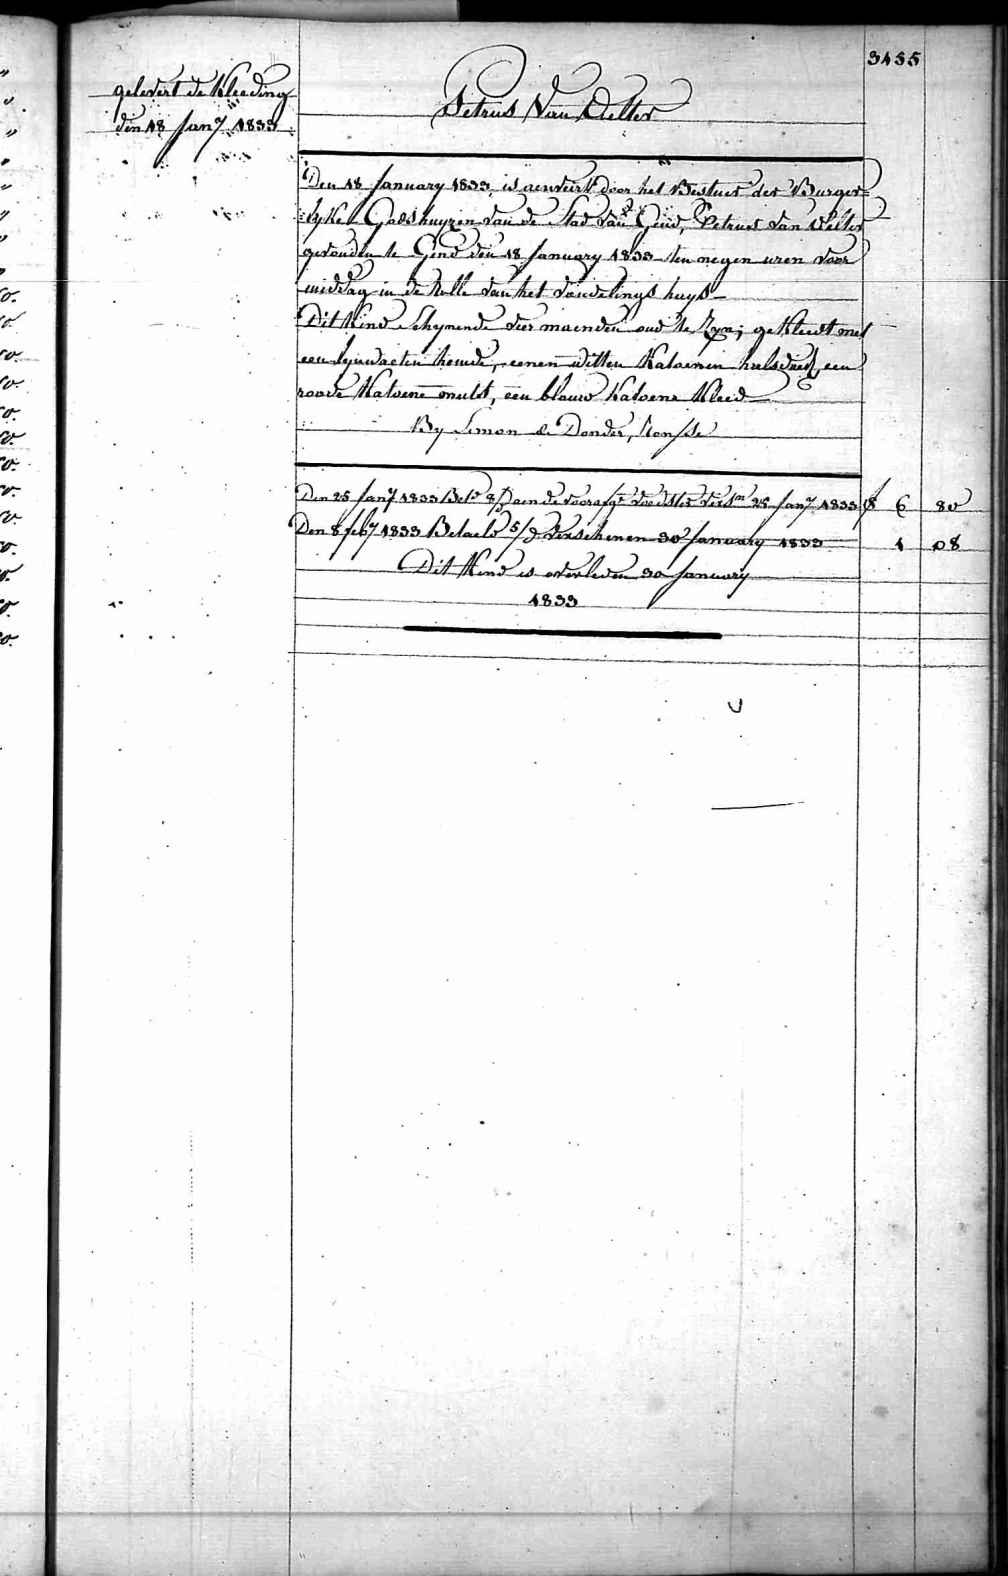 3455
gelevert de Kleeding
den 18 Jany 1833
Petrus Van Velter
Den 18 January 1833, is aenveirt door het Bestuer der Burger=
=lyke Godshuyzen van de Stad van Gend, Petrus van Velter
gevonden te Gend den 18 January 1833 ten negen uren voor
middag in de Rolle van het vondelings huys
Dit Kind schynende vier maenden oud te Zyn; gekleedt met
een lynwaeten hemde, eenen witten Katoenen halsdoek, een
roode Katoene muts, een blauw Katoene Kleed
By Simon de Donder, Ronsse
Den 25 Jany 1833 Bet. aen de voedster 25 Jany 1833 f 6 80
Den 8 feby 1833 Betaeld 5/ verschenen 30 January 1833 1 08
Dit Kind is overleden 30 January
1833